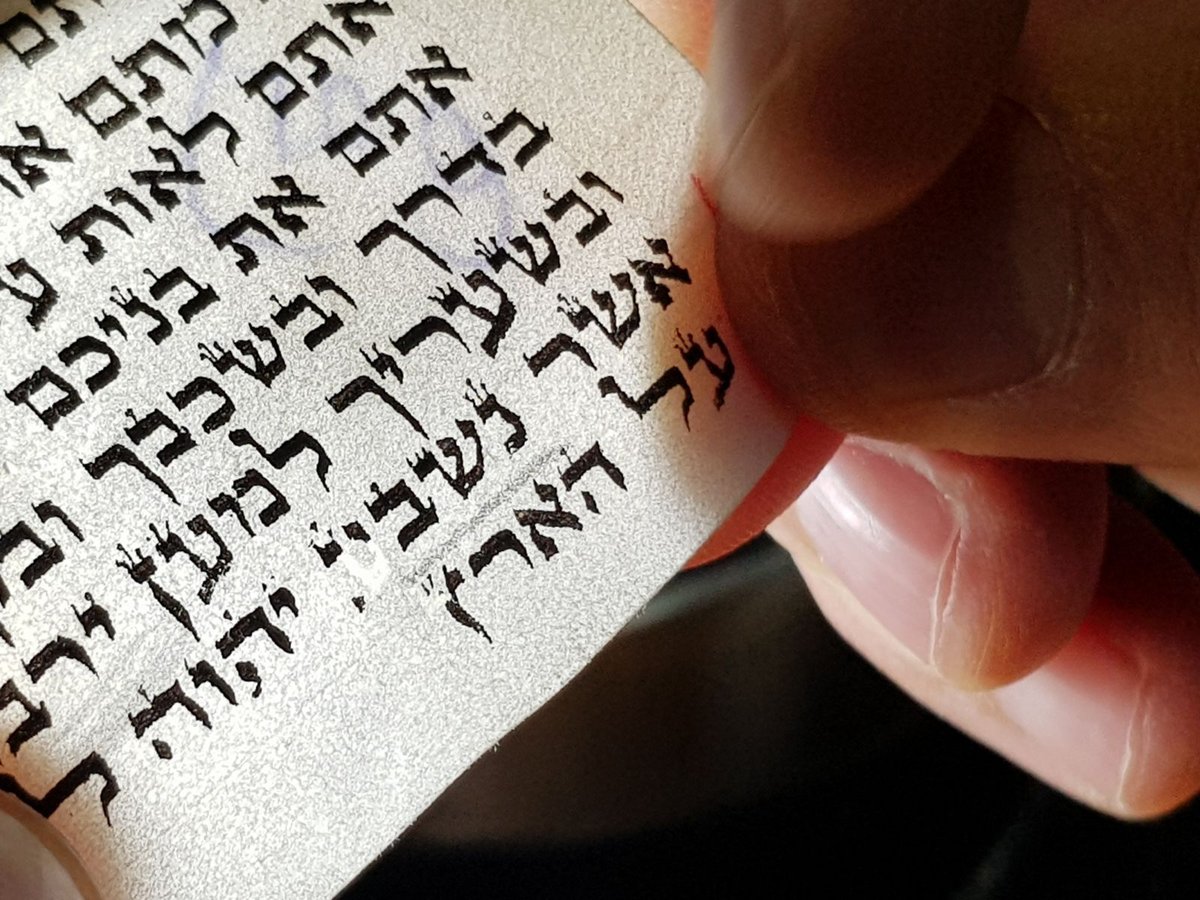 מתם את
אתם לאות
אתם את בניכם
בדרך ובשכבך
ובשעריך למען ירב
אשר נשבע יהוה
על הארץ